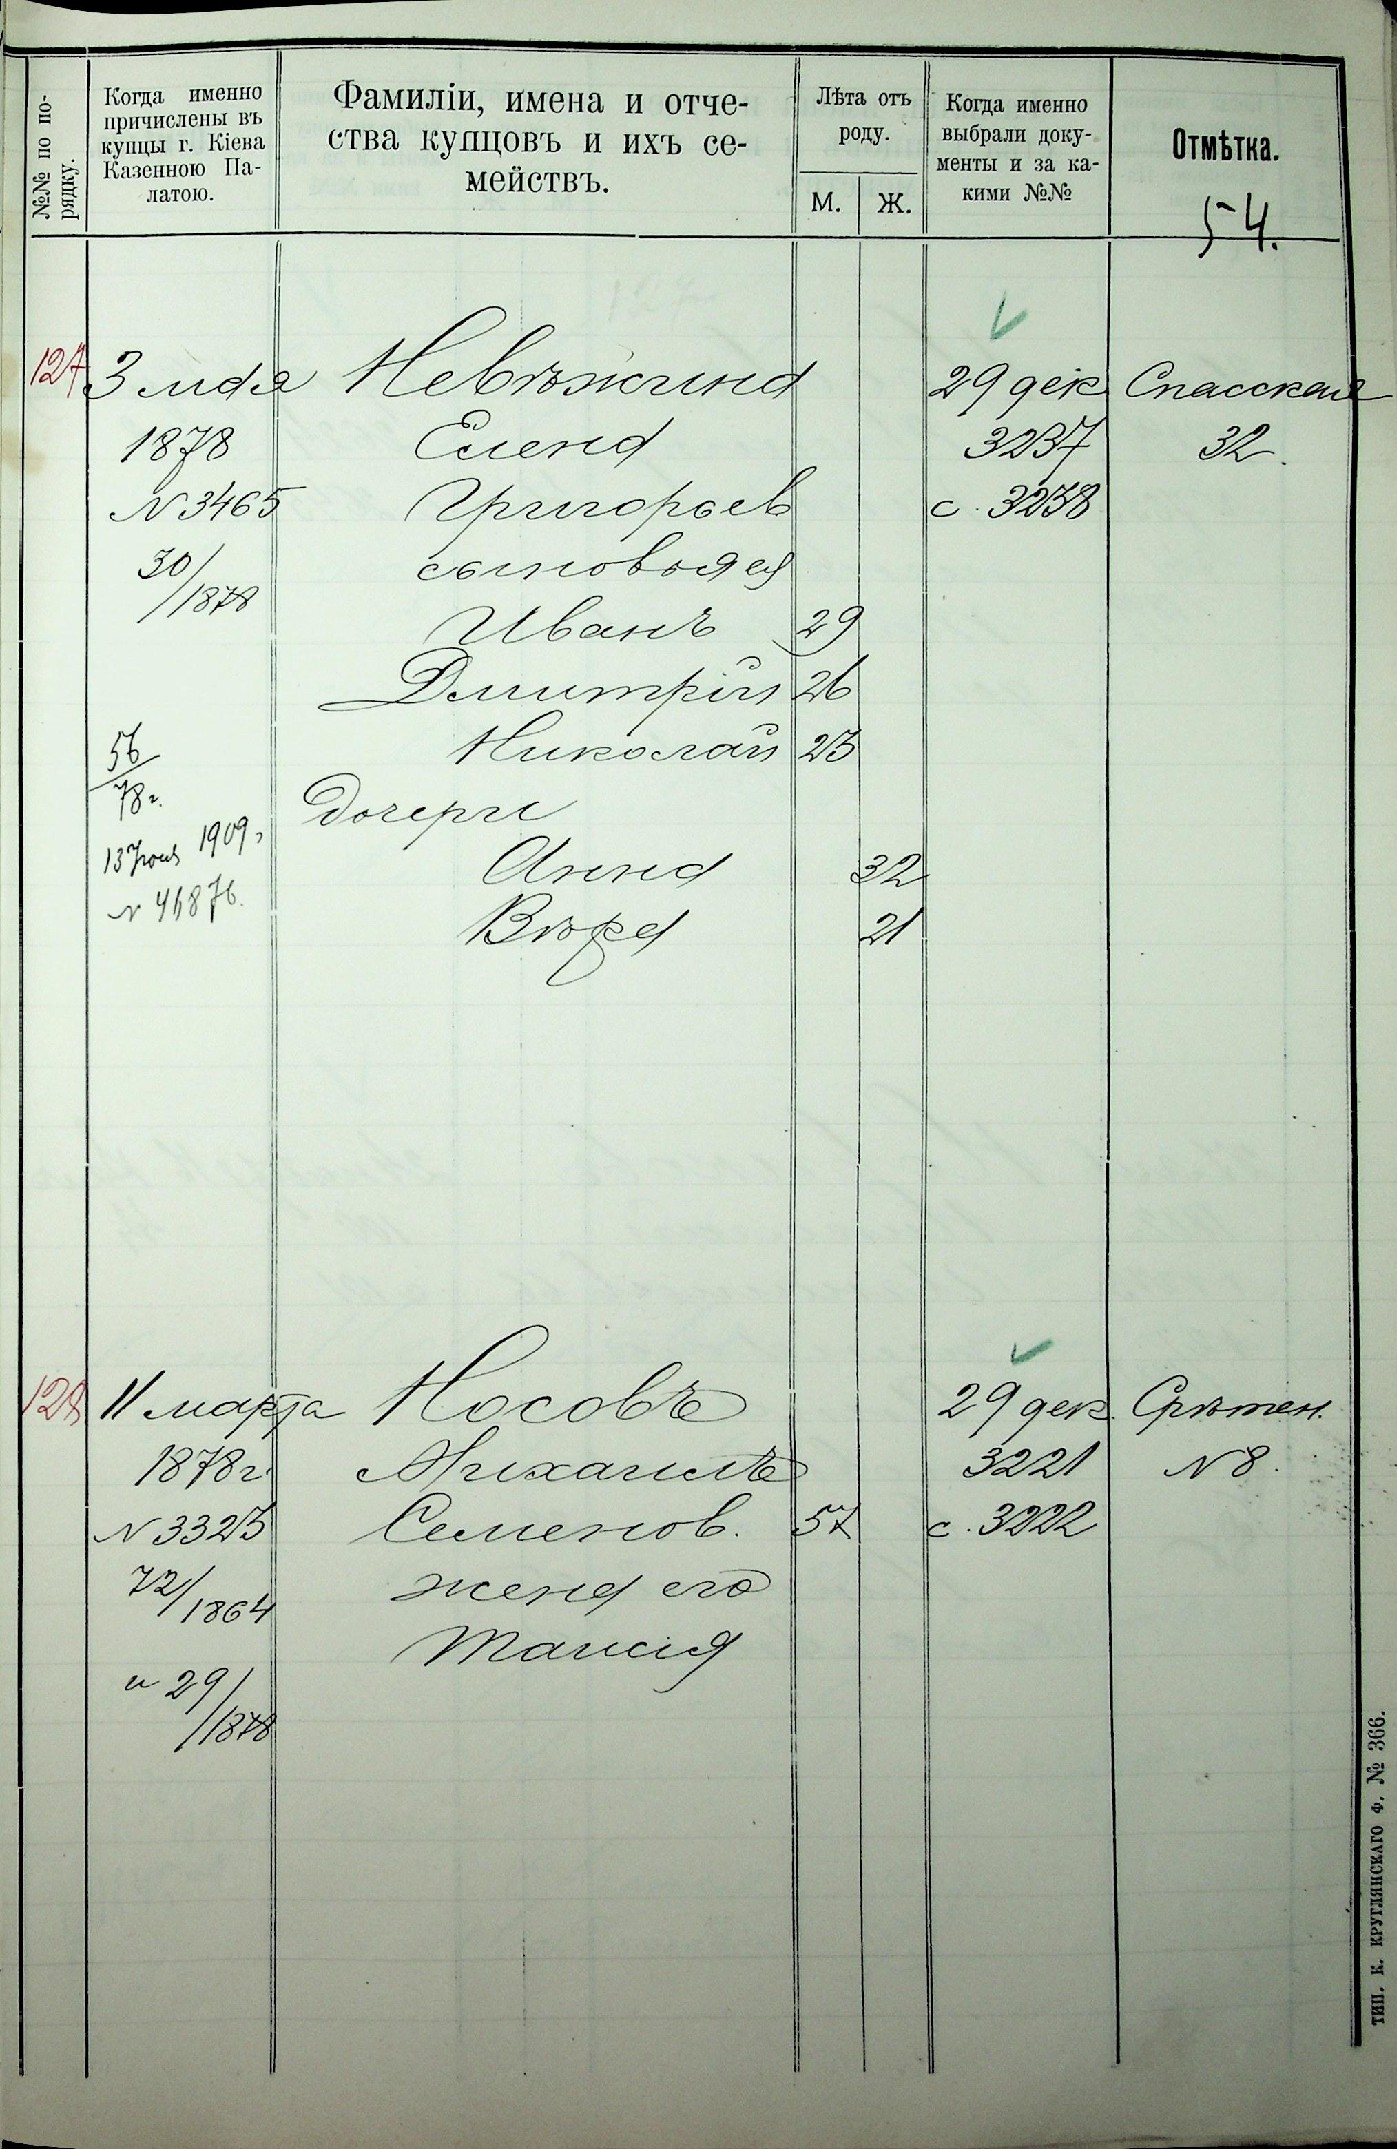 №№ по по-
рядку.
Когда именно
причислены въ
купцы г. Кіева
Казенною Па-
латою.
Фамиліи, имена и отче-
ства купцовъ и ихъ се-
мействъ.
Лѣта отъ
роду.
М. Ж.
Когда именно
выбрали доку-
менты и за ка-
кими №№
Отмѣтка.
54.
127 3 мая Невѣжина 29 дек Спасская
1878 Елена 3237 32.
N 3465 Григорьев с. 3238
30/1878 сыновья ея
Иванъ 29
Дмитрій 26
Николай 23
56/78 г.
дочери
13 Іюня 1909 г.
Анна 32
N 46876.
Вѣра 21
128 11 марта Носовъ 29 дек. Срѣтен.
1878 г. Михаилъ 3221 N 8.
N 3323 Семенов. 57 с. 3222
72/1864 жена его
Таисія
и 29/1878
ТИП. К. КРУГЛЯНСКАГО Ф. № 366.